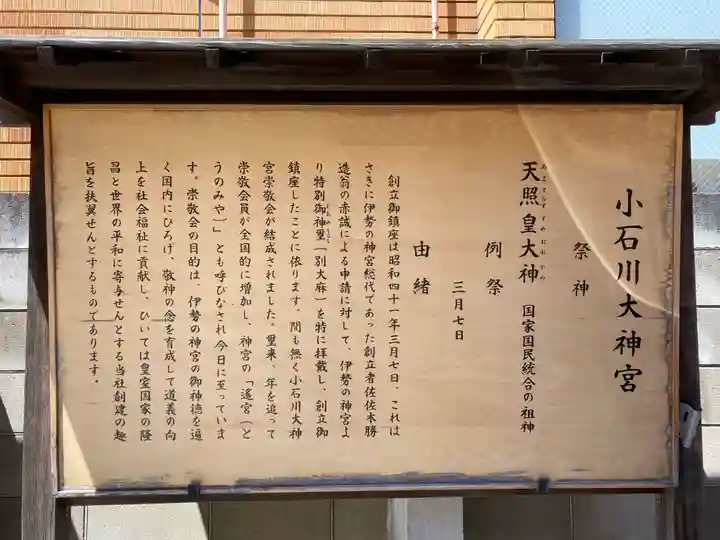 小石川大神宮
祭神
天照皇大神 国家国民統合の祖神
あまてらすすめおおかみ
例祭
三月七日
由緒
創立御鎮座は昭和四十一年三月七日、これは
さきに伊勢の神宮総代であった創立者佐佐木勝
造翁の赤誠による申請に対して、伊勢の神宮よ
り特別御神璽(別大麻)を特に拝戴し、創立御
鎮座したことに依ります。間も無く小石川大神
宮崇敬会が結成されました。爾来、年を追って
崇敬会員が全国的に増加し、神宮の「遙宮(と
うのみや)」とも呼びなされ今日に至っていま
す。崇敬会の目的は、伊勢の神宮の御神徳を遍
く国内にひろげ、敬神の念を育成して道義の向
上を社会福祉に貢献し、ひいては皇室国家の隆
昌と世界の平和に寄与せんとする当社創建の趣
旨を扶翼せんとするものであります。